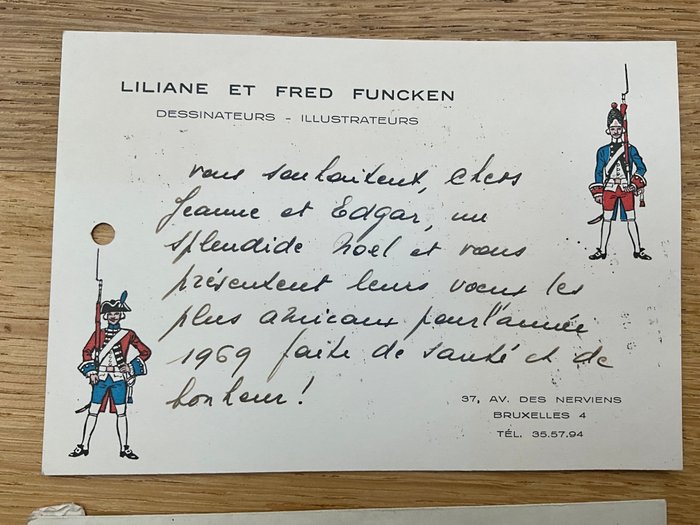 LILIANE ET FRED FUNCKEN
DESSINATEURS - ILLUSTRATEURS
vous souhaitent, chers
Jeanne et Edgar, un
splendide Noël et vous
présentent leurs vœux les
plus amicaux pour l'année
1969 faite de santé et de
bonheur !
37, AV. DES NERVIENS
BRUXELLES 4
TÉL. 35.57.94